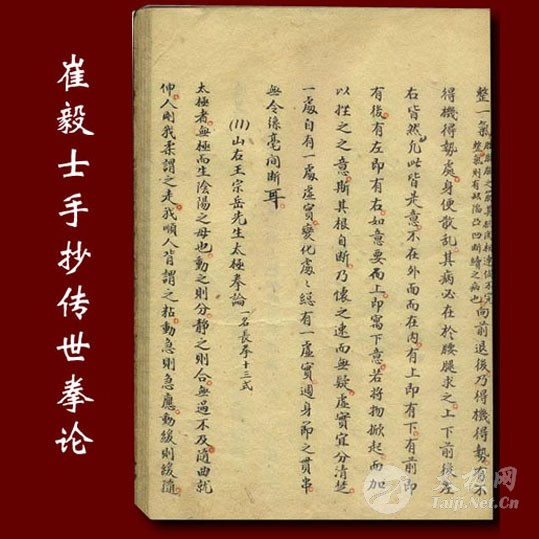 崔毅士手抄传世拳论
整一氣
整氣則有缺陷凸凹斷續之病也
向前退後乃得機得勢有不
得機得勢處身便散亂其病必在於腰腿求之上下前後左
右皆然凡此皆是意不在外面而在內有上即有下有前即
有後有左即有右如意要向上即寓下意若將物掀起而加
以挫之之意斯其根自斷乃懷之速而無疑虛實宜分清楚
一處自有一處虛實變化處〻總有一虛實週身節之貫串
無令絲毫間斷耳
(11)山右王宗岳先生太極拳論 一名長拳十三式
太極者無極而生陰陽之母也動之則分靜之則合無過不及隨曲就
伸人剛我柔謂之走我順人背謂之粘動急則急應動緩則緩隨
太极网
Taip.Net.Cn